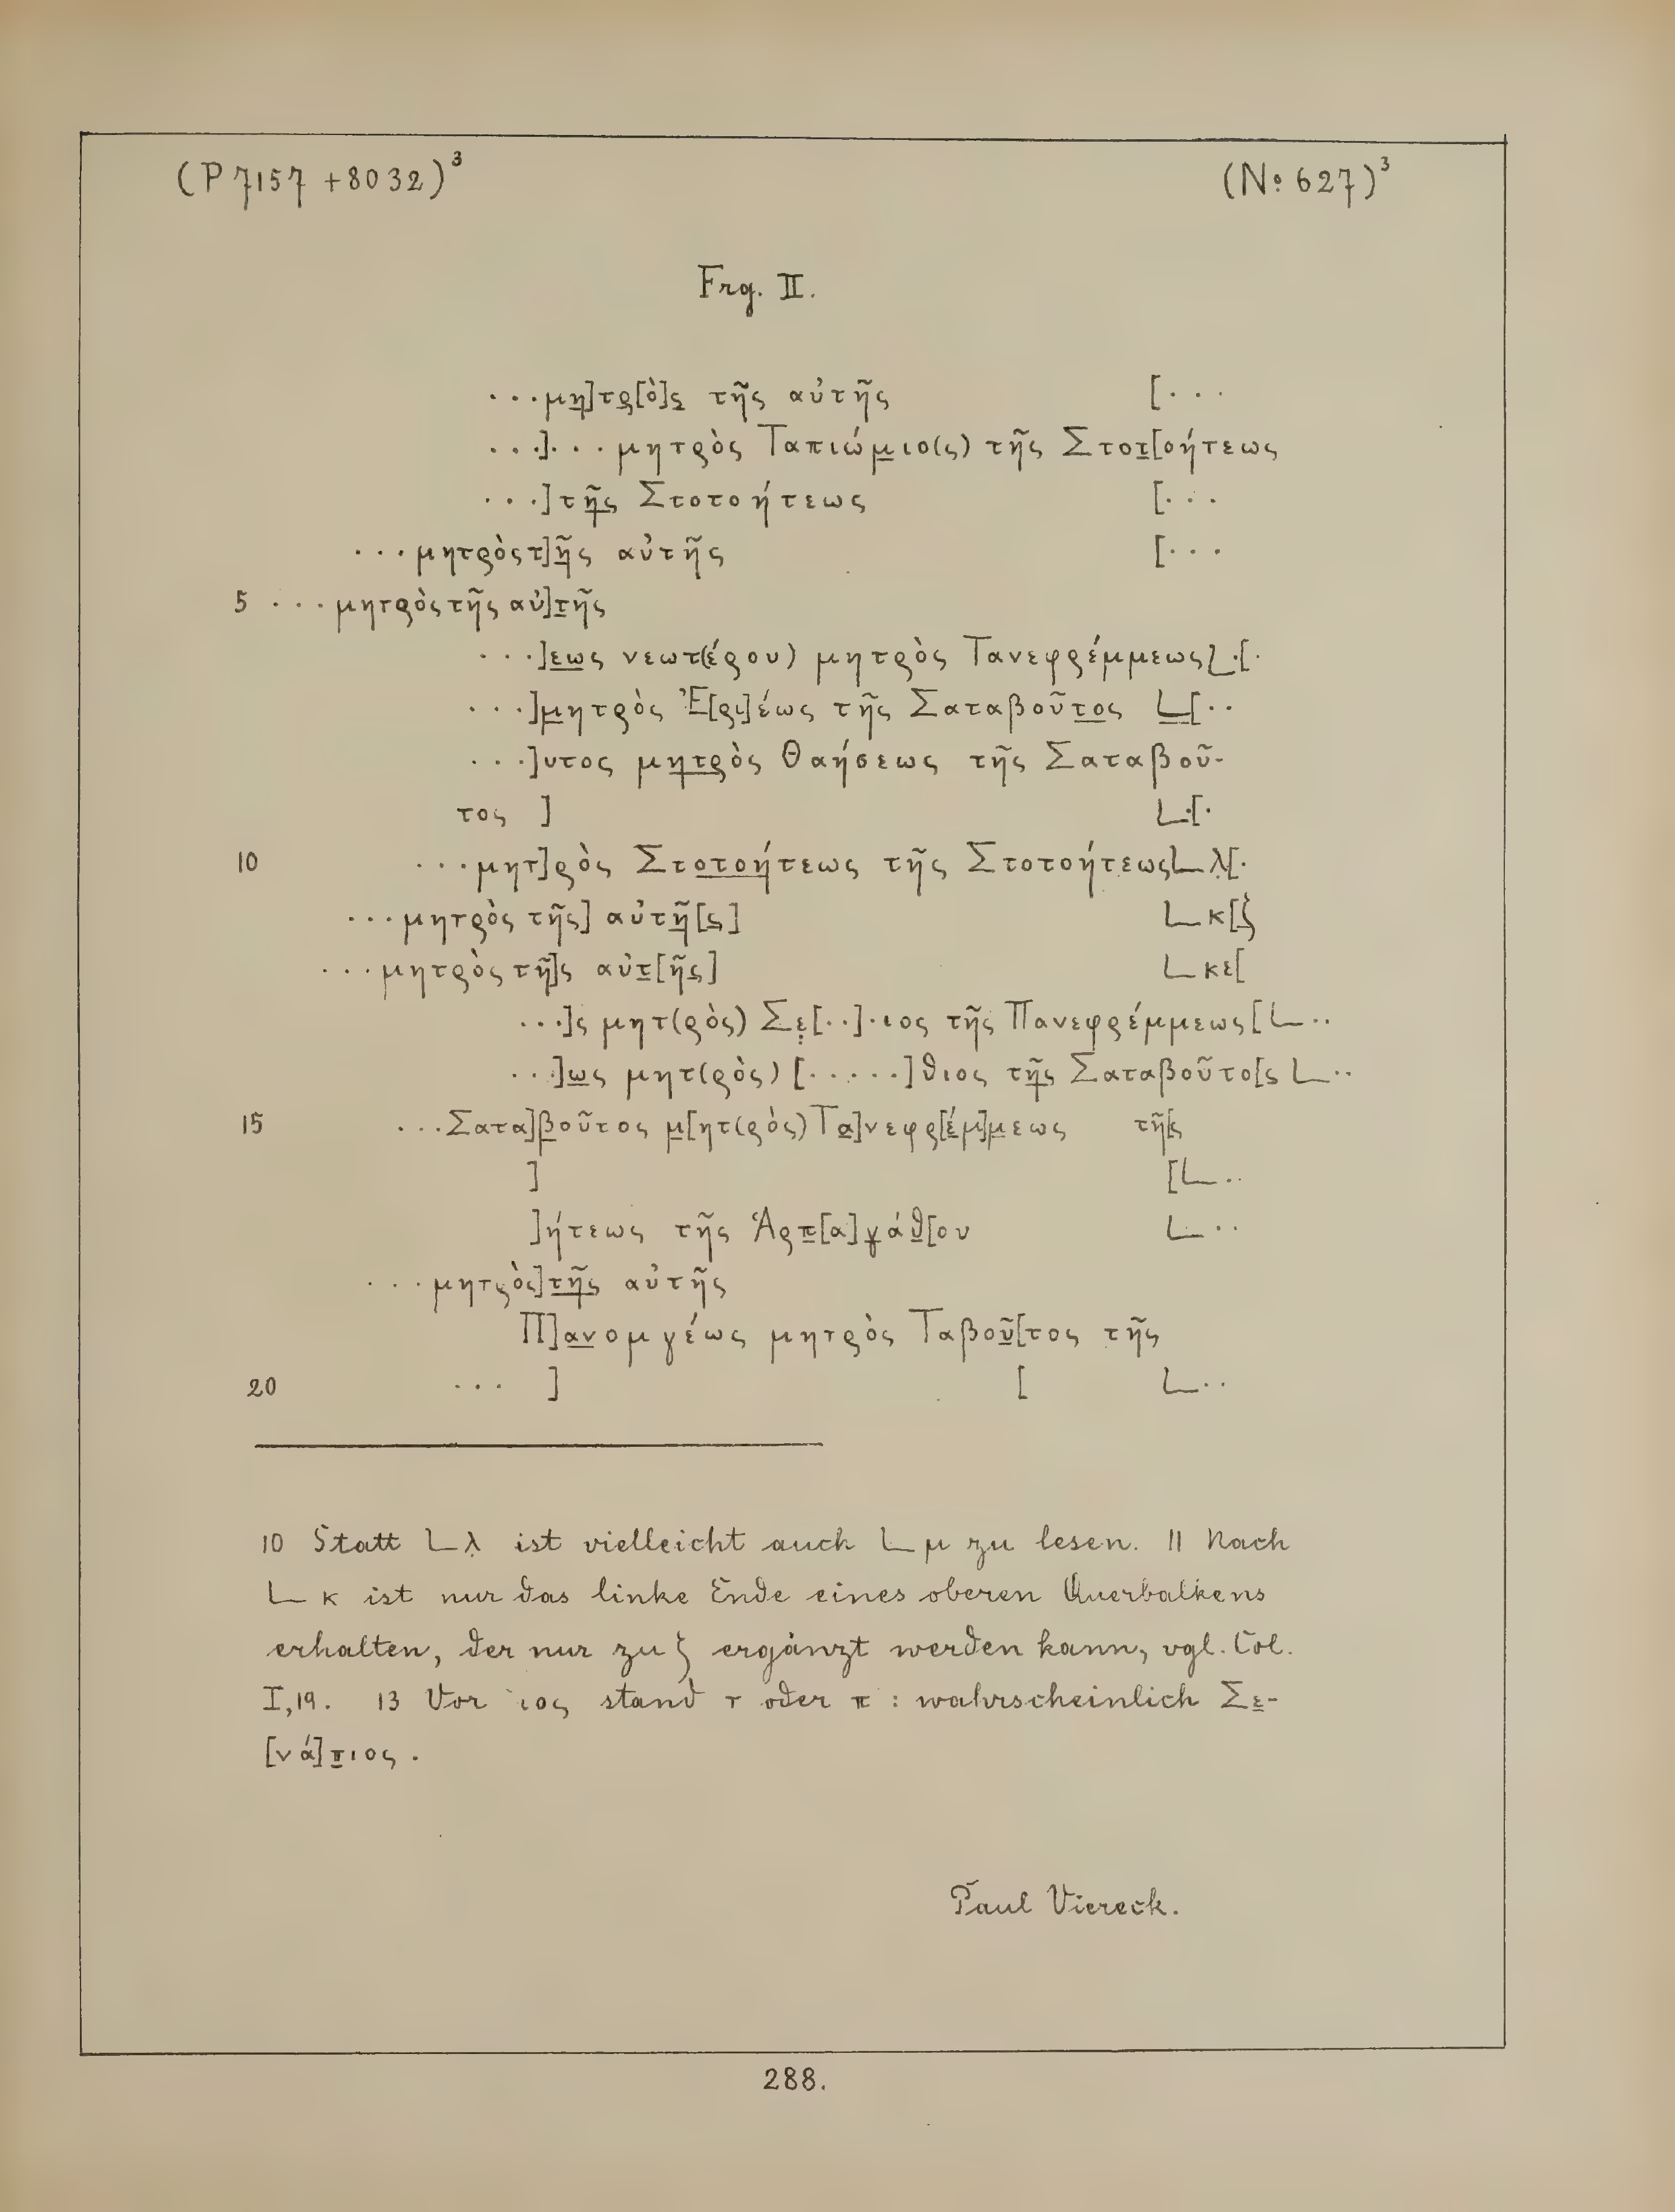 (P 7157 + 8032)³ (Nº 627)³
Frg. II.
...μη]τρ[ὸ]ς τῆς αὐτῆς [...
...]... μητρὸς Ταπιώμιο(ς) τῆς Στοτ[οήτεως
...]τῆς Στοτοήτεως [...
...μητρὸς τ]ῆς αὐτῆς [...
5 ...μητρὸς τῆς αὐ]τῆς
...]εως νεωτ(έρου) μητρὸς Τανεφρέμμεως L.[.
...]μητρὸς Ἐ[ρι]έως τῆς Σαταβοῦτος L[..
...]υτος μητρὸς Θαήσεως τῆς Σαταβοῦ-
τος ] L.[.
10 ...μητ]ρὸς Στοτοήτεως τῆς Στοτοήτεως L λ[.
...μητρὸς τῆς] αὐτῆ[ς] L κ[ζ
...μητρὸς τῆ]ς αὐτ[ῆς] L κε[
...]ς μητ(ρὸς) Σε[..].ιος τῆς Πανεφρέμμεως [L..
...]ως μητ(ρὸς) [.....]θιος τῆς Σαταβοῦτο[ς L..
15 ...Σατα]βοῦτος μ[ητ(ρὸς) Τα]νεφρ[έμ]μεως τῆ[ς
] [L..
]ήτεως τῆς Ἁρπ[α]γάθ[ου L..
...μητρὸς] τῆς αὐτῆς
Π]ανομγέως μητρὸς Ταβοῦ[τος τῆς
20 ... ] [ L..
10 Statt L λ ist vielleicht auch L μ zu lesen. 11 Nach
L κ ist nur das linke Ende eines oberen Querbalkens
erhalten, der nur zu ζ ergänzt werden kann, vgl. Col.
I,19. 13 Vor ιος stand τ oder π : wahrscheinlich Σε-
[νά]πιος .
Paul Viereck.
288.